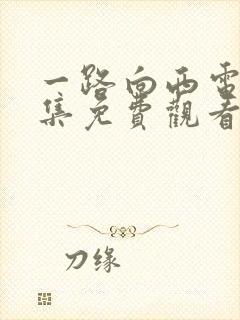 一路向西電
集免費觀看
刀缘